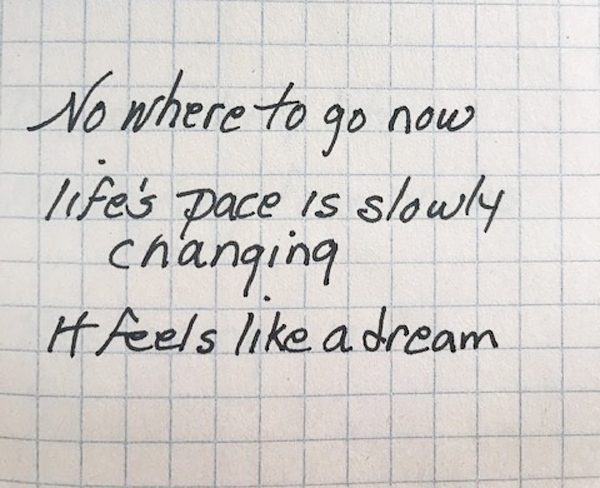 No where to go now
life's pace is slowly
changing
It feels like a dream